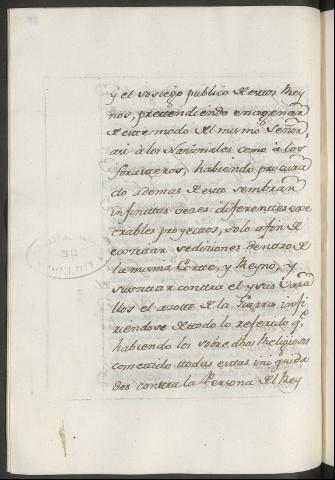 y el sosiego publico de estos Rey
nos, pretendiendo enagenar
de este modo del mismo Señor,
asi à los Nacionales como à los
forasteros, habiendo procura
do ademas de esto sembrar
infinitas veces diferentes exe
crables proyectos, solo afin de
excitar sediciones dentro de
la misma Corte, y Reyno, y
suscitar contra el y sus Vasa
llos el azote de la Guerra infi
riendose de todo lo referido q.e
habiendo los sobredhos Religiosos
cometido todas estas iniquida
des contra la Persona del Rey